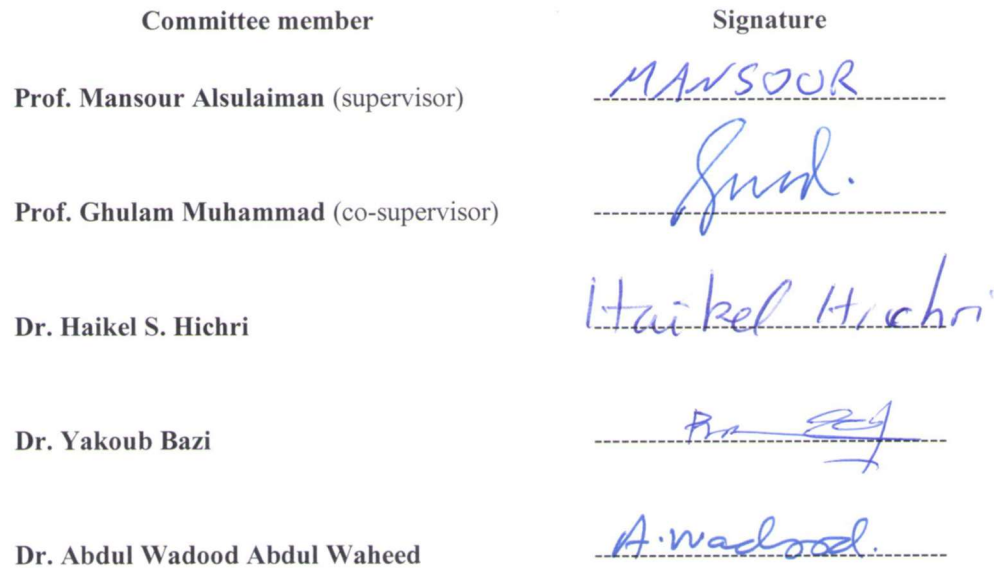 Committee member Signature
Prof. Mansour Alsulaiman (supervisor) MANSOUR
Prof. Ghulam Muhammad (co-supervisor)
Dr. Haikel S. Hichri Haikel Hichri
Dr. Yakoub Bazi
Dr. Abdul Wadood Abdul Waheed A.wadood.